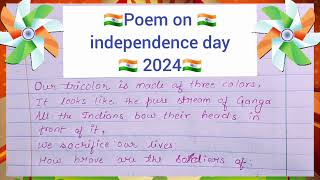 🇮🇳Poem on 🇮🇳
independence day
🇮🇳 2024🇮🇳
Our tricolor is made of three colors,
It looks like the pure stream of Ganga
All the Indians bow their heads in
front of it,
We sacrifice our lives
How brave are the soldiers of.